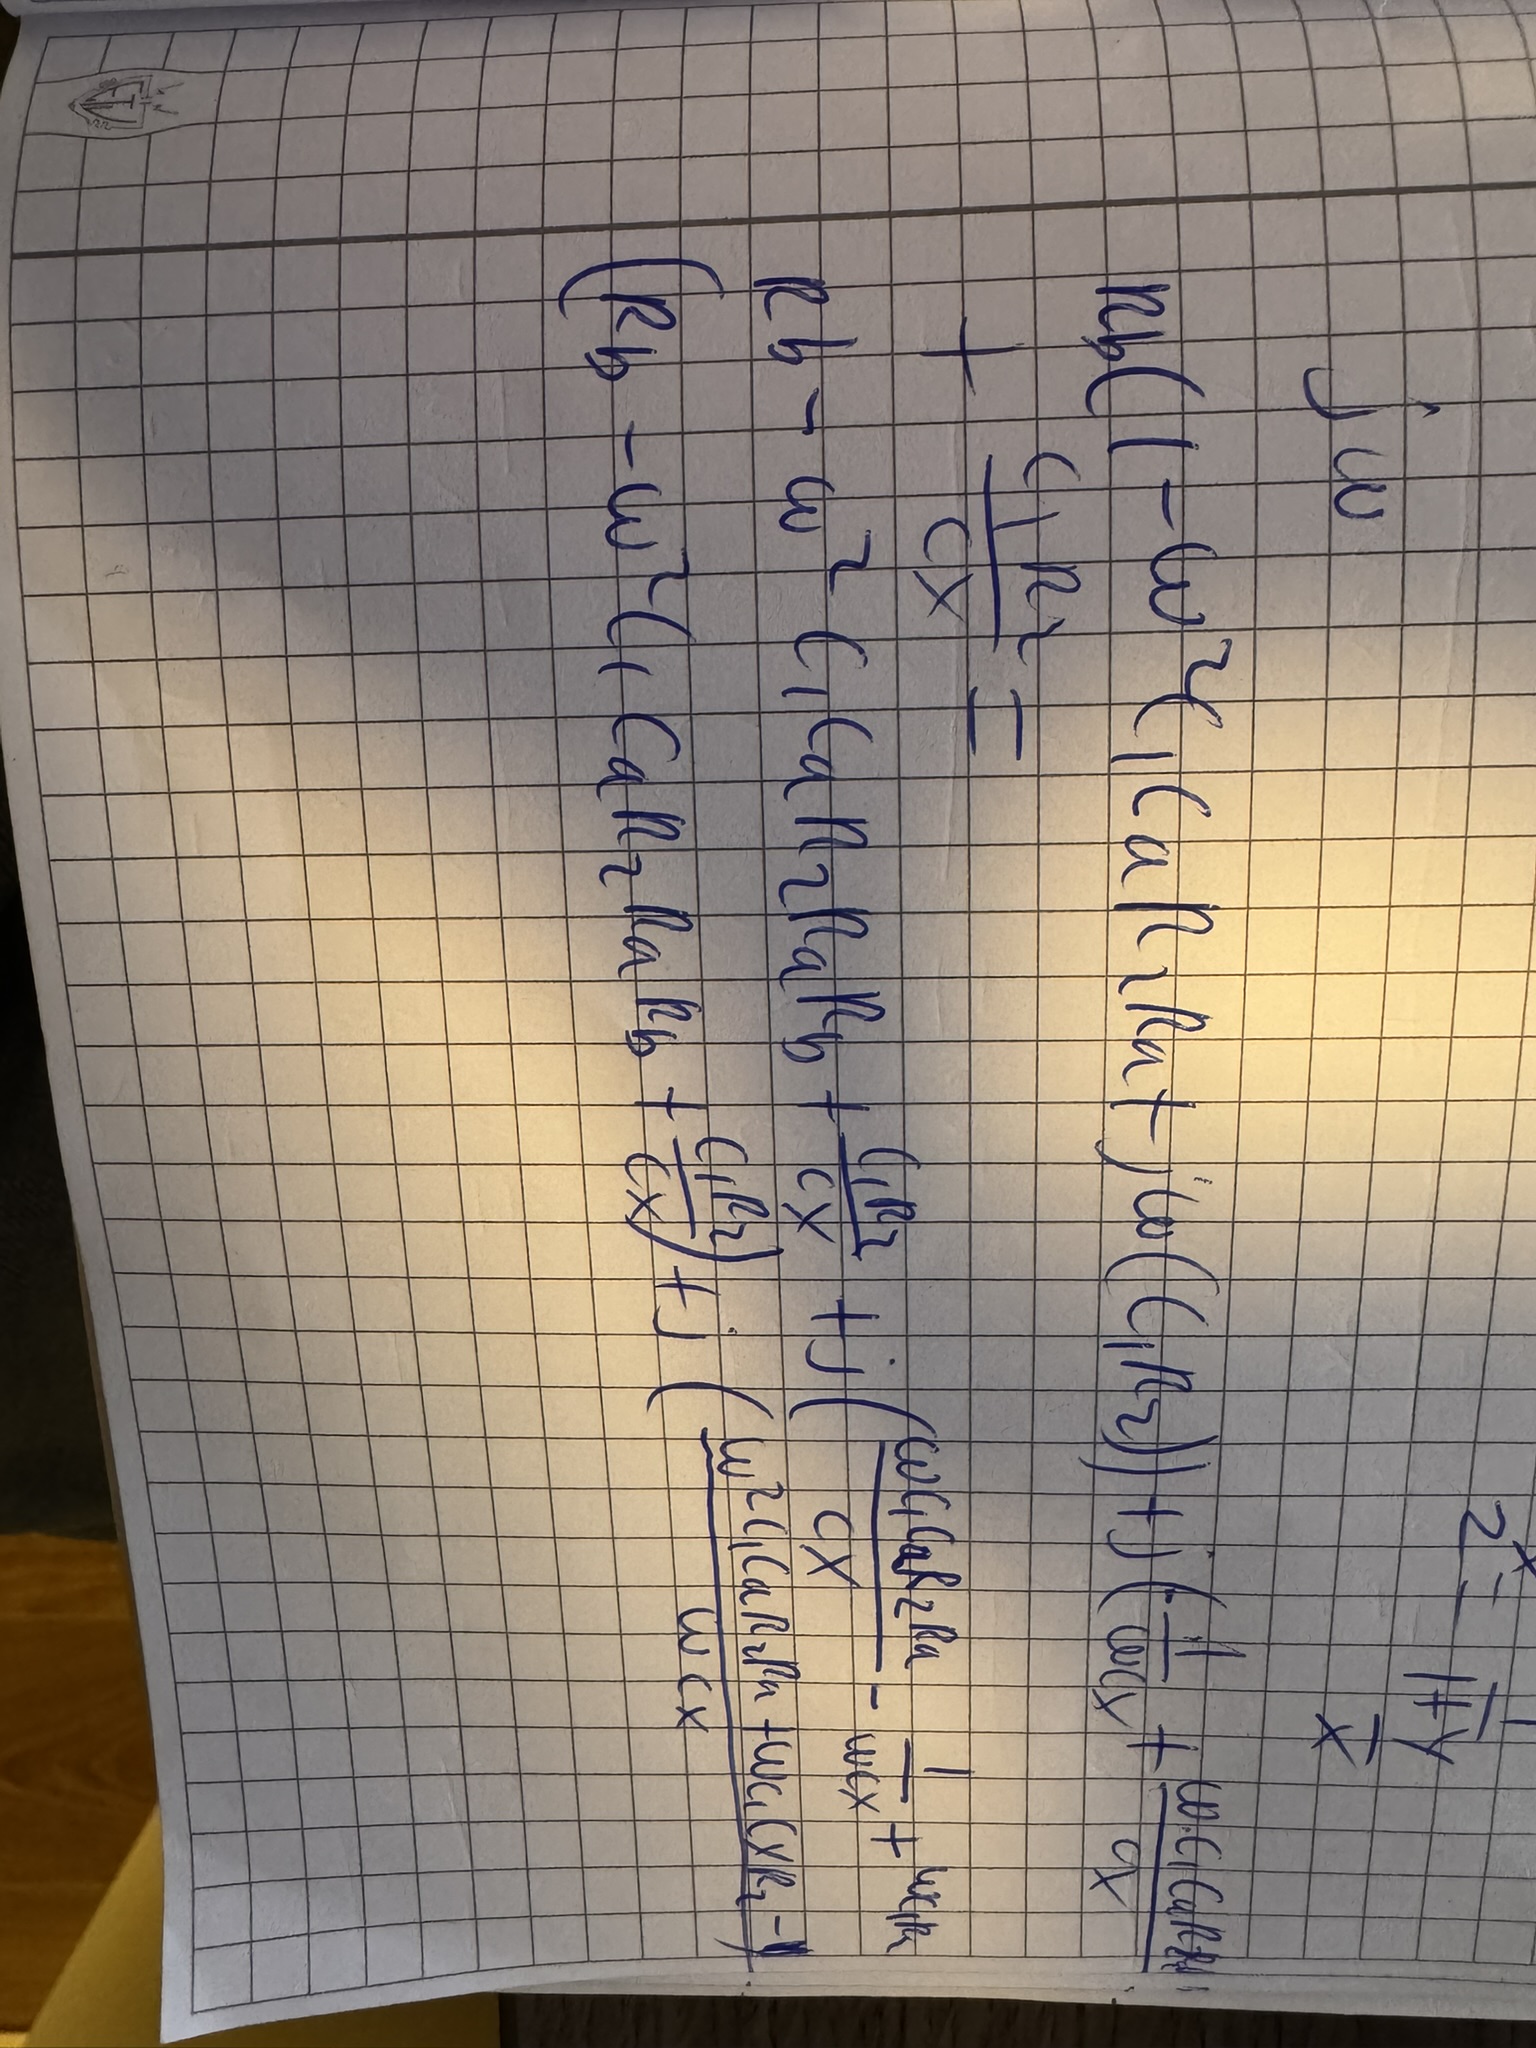 x
2 = 1
1 + y
x
jω
Rb(1 - ω²C₁CaR₂Ra + jω(C₁R₂)) + j(-1/ωCx + ωC₁CaR₂Ra/Cx)
+ C₁R₂/Cx =
Rb - ω²C₁CaR₂RaRb + C₁R₂/Cx + j(ωC₁CaR₂Ra/Cx - 1/ωCx + ωC₁R₂
(Rb - ω²C₁CaR₂RaRb + C₁R₂/Cx) + j(ω²C₁CaR₂Ra + ωC₁CxR₂ - 1/ωCx)